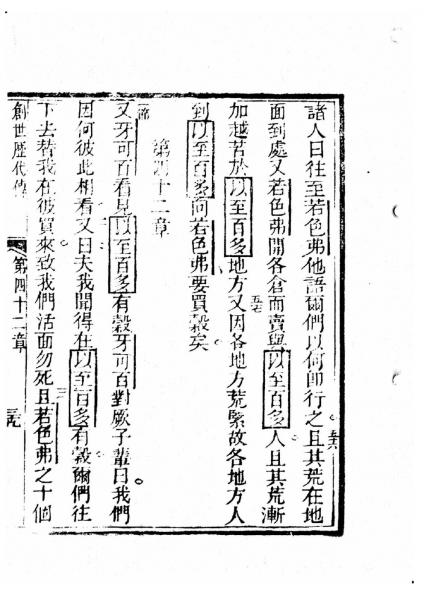 諸人曰往至若色弗他語爾們以何卽行之且其荒在地
五六
面到處又若色弗開各倉而賣與以至百多人且其荒漸
五七
加越苦於以至百多地方又因各地方荒緊故各地方人
到以至百多向若色弗要買穀矣
第四十二章
一節
又牙可百看見以至百多有穀牙可百對厥子輩曰我們
因何彼此相看又曰夫我聞得在以至百多有穀爾們往
二
下去替我在彼買來致我們活而勿死且若色弗之十個
三
創世歷代傳
第四十二章